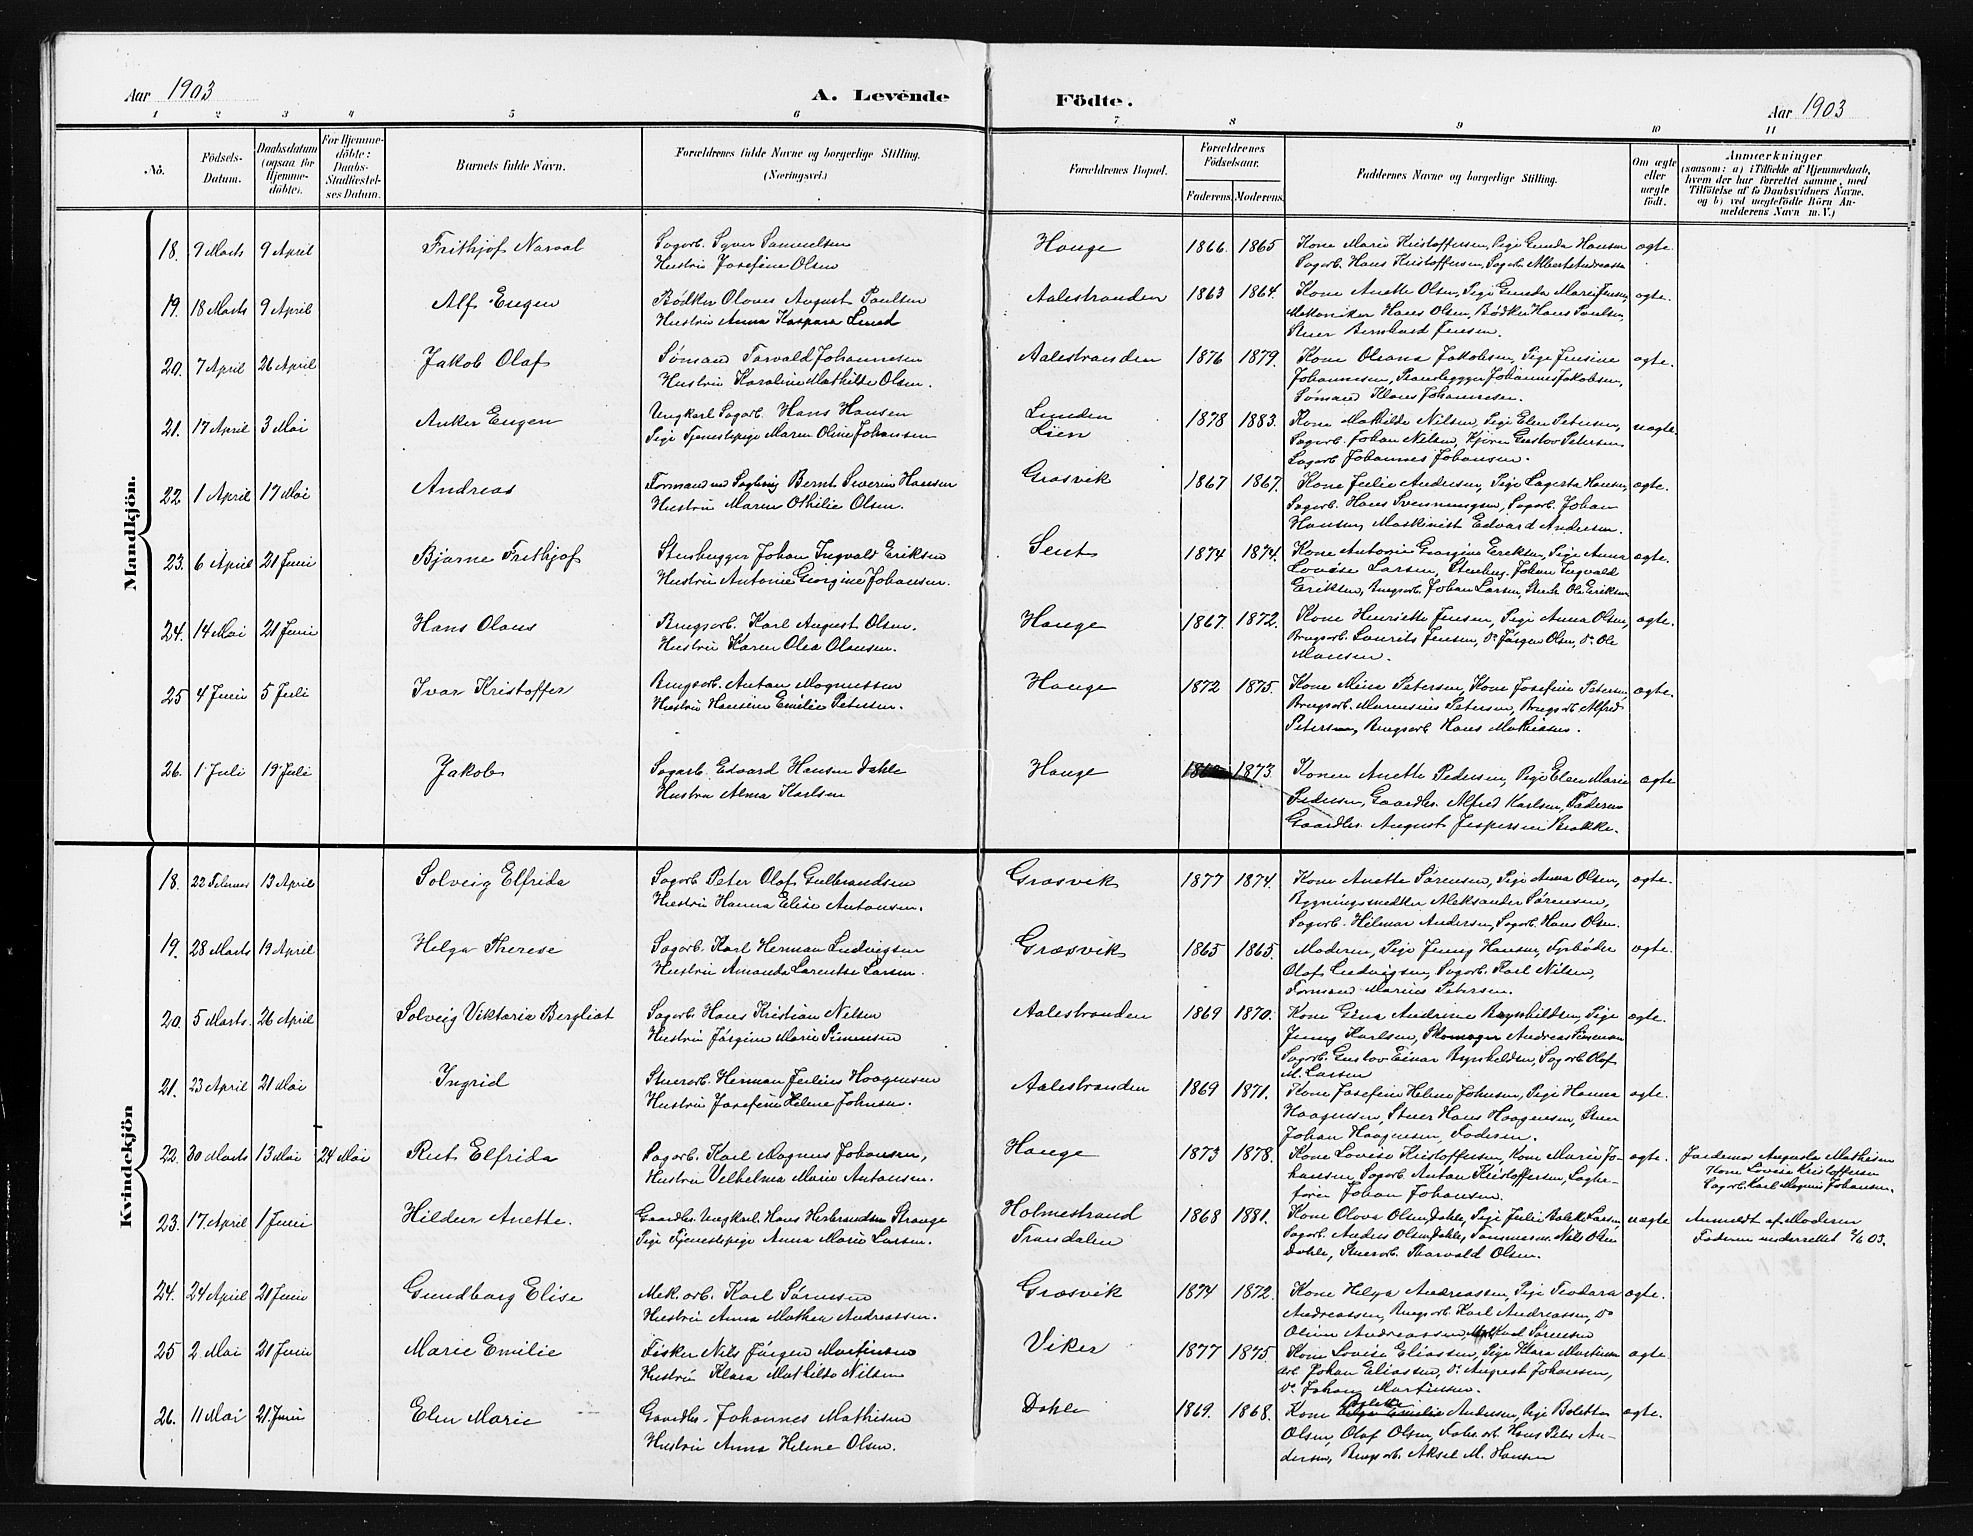 Aar 1903
A. Levende
Födte.
Aar 1903
1 2 3 4 5 6 7 8 9 10 11
No.
Födsels-
Datum.
Daabsdatum
(ogsaa for
Hjemme-
döbte).
For Hjemme-
döbte:
Daabs-
Stadfæstel-
ses Datum.
Barnets fulde Navn.
Forældrenes fulde Navne og borgerlige Stilling.
(Næringsvei.)
Forældrenes Bopæl.
Forældrenes
Födselsaar.
Faderens. Moderens.
Faddernes Navne og borgerlige Stilling.
Om ægte
eller
uægte
födt.
Anmærkninger
(saasom: a) i Tilfælde af Hjemmedaab,
hvem der har forrettet samme, med
Tilföielse af to Daabsvidners Navne,
og b) ved uægtefödte Börn An-
melderens Navn m. V.)
Mandkjön.
18. 9 Marts 9 April Frithjof Narval Sagarb. Syver Samuelsen Hauge 1866. 1865 Kone Marie Kristoffersen, Pige Gunda Hansen ægte.
Hustru Josefine Olsen Sagarb. Hans Kristoffersen, Sagarb. Albert Andreassen
19. 18 Marts 9 April Alf Eugen Bødker Olaves August Paulsen Aalestranden 1863 1864. Kone Anette Olsen, Pige Gunda Marie Jensen, ægte.
Hustru Anna Kaspara Lund Mekaniker Hans Olsen, Bødker Hans Paulsen,
Stuer Bernhard Jensen.
20. 7 April 26 April Jakob Olaf Sømand Torvald Johannesen Aalestranden 1876 1879. Kone Oleana Jakobsen, Pige Jensine ægte.
Hustru Karoline Mathilde Olsen. Johannesen, Stenhugger Johannes Jakobsen,
Sømand Klaus Johannesen.
21. 17 April 3 Mai Anker Eugen Ungkarl Sagarb. Hans Hansen Lunden 1878 1883. Kone Mathilde Nilsen, Pige Elen Petersen, uægte.
Pige Tjenestepige Maren Oline Johansen Lien Sagarb. Johan Nilsen, Kjører Gustav Petersen
Sagarb. Johannes Johansen.
22 1 April 17 Mai Andreas Formand ved Sagbrug Bernt Severin Hansen Græsvik 1867 1867. Kone Julie Andersen, Pige Lagerta Hansen, ægte.
Hustru Maren Othilie Olsen. Sagarb. Hans Svenningsen, Sagarb. Johan
Hansen, Maskinist Edvard Andersen.
23. 6 April 21 Juni Bjarne Frithjof Stenhugger Johan Ingvald Eriksen Seut 1874 1874. Kone Antonie Georgine Eriksen, Pige Anna ægte.
Hustru Antonie Georgine Johansen. Lovise Larsen, Stenhug. Johan Ingvald
Eriksen, Brugsarb. Johan Larsen, Stenh. Ole Eriksen
24. 14 Mai 21 Juni Hans Olaus Brugsarb. Karl August Olsen. Hauge 1867. 1872. Kone Henriette Jensen, Pige Anna Olsen, ægte.
Hustru Karen Olea Olausen. Brugsarb. Laurits Jensen, Do Jørgen Olsen, Do Ole
Mansen.
25 4 Juni 5 Juli Ivar Kristoffer Brugsarb. Anton Magnussen Hauge 1872 1875. Kone Mina Petersen, Kone Josefine Petersen, ægte.
Hustru Hansine Emilie Petersen. Brugsarb. Marensius Petersen, Brugsarb. Alfred
Petersen, Brugsarb. Hans Mathiasen.
26. 1 Juli 19 Juli Jakob Sagarb. Edvard Hansen Dahle Hauge 1873. Konen Anette Pedersen, Pige Elen Marie ægte
Hustru Alma Karlsen Pedersen, Gaardbr. Alfred Karlsen, Faderen
Gaardbr. August Jespersen Brække.
Kvindekjön
18. 22 Februar 13 April Solveig Elfrida Sagarb. Peter Olaf Gulbrandsen Græsvik 1877 1874. Kone Anette Sørensen, Pige Anna Olsen, ægte.
Hustru Hanna Elise Antonsen. Bygningssnedker Aleksander Sørensen,
Sagarb. Hilmar Andersen, Sagarb. Hans Olsen.
19. 28 Marts 19 April Helga Therese Sagarb. Karl Herman Ludvigsen Græsvik 1865 1865. Moderen, Pige Jenny Hansen, Fyrbøder ægte.
Hustru Amanda Larentse Larsen. Olaf Ludvigsen, Sagarb. Karl Nilsen,
Formand Marius Petersen.
20. 5 Marts. 26 April Solveig Viktoria Bergliot Sagarb. Hans Kristian Nilsen Aalestranden 1869 1870. Kone Gina Andrine Brynhildsen, Pige ægte.
Hustru Jørgine Marie Simensen Jenny Karlsen, Skomager Andreas Simensen
Sagarb. Gustav Einar Brynhildsen, Sagarb. Olaf
M. Larsen
21. 23 April 21 Mai Ingrid Stuerarb. Herman Julius Haagensen Aalestranden 1869 1871. Kone Josefine Helene Johnsen, Pige Hanna ægte.
Hustru Josefine Helene Johnsen. Haagensen, Stuer Hans Haagensen, Stuer
Johan Haagensen, Faderen.
22. 30 Marts 13 Mai 24 Mai Rut Elfrida Sagarb. Karl Magnus Johansen, Hauge 1873 1878. Kone Lovise Kristoffersen, Kone Marie Jo- ægte. Jordemor Augusta Mathisen
Hustru Vilhelma Marie Antonsen. hansen, Sagarb. Anton Kristoffersen, Sagbe-
Kone Lovise Kristoffersen
fører Johan Johansen. Sagarb. Karl Magnus Johansen.
23. 17 April 1 Juni Hildur Anette. Gaardbr. Ungkarl Hans Herbrandsen Strange Holmestrand 1868 1881. Kone Olava Olsen Dahle, Pige Julie Bolette Larsen, uægte Anmeldt af Moderen
Pige Tjenestepige Anna Marie Larsen. Trondalen Sagarb. Anders Olsen Dahle, Tømmerm. Nils Olsen Faderen underrettet 2/6 03.
Dahle, Stuerarb. Tharvald Olsen.
24. 24 April 21 Juni Gundborg Elise Mek.arb. Karl Sørensen Græsvik 1874 1872. Kone Helga Andreassen, Pige Teodora ægte.
Hustru Anna Mathea Andreassen. Andreassen, Brugsarb. Karl Andreassen, Do
Olium Andreassen, Karl Sørensen
25 2 Mai 21 Juni Marie Emilie Fisker Nils Jørgen Martinsen Viker 1877 1875. Kone Lovise Eliassen, Pige Klara Martinsen ægte.
Hustru Klara Mathilde Nilsen Arb. Johan Eliassen, Do August Johansen,
Do Johan Martinsen.
26. 11 Mai 21 Juni Elen Marie Gaardbr. Johannes Mathisen Dahle 1869. 1868. Kone Andersen, Pige Boletta ægte.
Hustru Anna Helene Olsen. Olsen, Olaf Olsen, Fabr. arb. Hans Peter An-
dersen, Brugsarb. Aksel M. Hansen